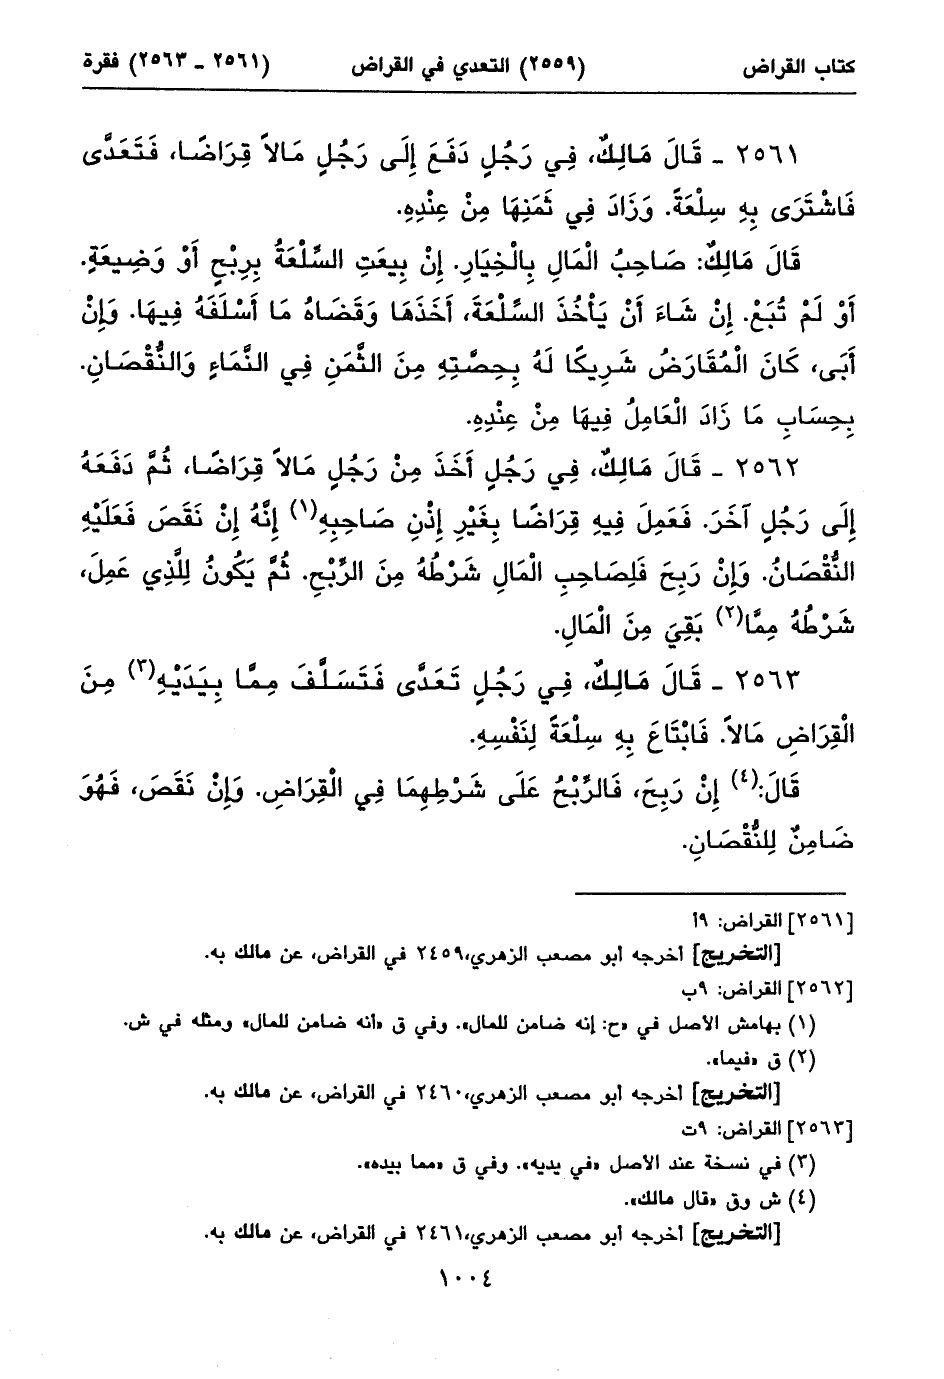 كتاب القراض (٢٥٥٩) التعدي في القراض (٢٥٦١ - ٢٥٦٣) فقرة
٢٥٦١ - قَالَ مَالِكٌ، فِي رَجُلٍ دَفَعَ إِلَى رَجُلٍ مَالاً قِرَاضًا، فَتَعَدَّى
فَاشْتَرَى بِهِ سِلْعَةً. وَزَادَ فِي ثَمَنِهَا مِنْ عِنْدِهِ.
قَالَ مَالِكٌ: صَاحِبُ الْمَالِ بِالْخِيَارِ. إِنْ بِيعَتِ السِّلْعَةُ بِرِبْحٍ أَوْ وَضِيعَةٍ.
أَوْ لَمْ تُبَعْ. إِنْ شَاءَ أَنْ يَأْخُذَ السِّلْعَةَ، أَخَذَهَا وَقَضَاهُ مَا أَسْلَفَهُ فِيهَا. وَإِنْ
أَبَى، كَانَ الْمُقَارَضُ شَرِيكًا لَهُ بِحِصَّتِهِ مِنَ الثَّمَنِ فِي النَّمَاءِ وَالنُّقْصَانِ.
بِحِسَابِ مَا زَادَ الْعَامِلُ فِيهَا مِنْ عِنْدِهِ.
٢٥٦٢ - قَالَ مَالِكٌ، فِي رَجُلٍ أَخَذَ مِنْ رَجُلٍ مَالاً قِرَاضًا، ثُمَّ دَفَعَهُ
إِلَى رَجُلٍ آخَرَ. فَعَمِلَ فِيهِ قِرَاضًا بِغَيْرِ إِذْنِ صَاحِبِهِ(١) إِنَّهُ إِنْ نَقَصَ فَعَلَيْهِ
النُّقْصَانُ. وَإِنْ رَبِحَ فَلِصَاحِبِ الْمَالِ شَرْطُهُ مِنَ الرِّبْحِ. ثُمَّ يَكُونُ لِلَّذِي عَمِلَ،
شَرْطُهُ مِمَّا(٢) بَقِيَ مِنَ الْمَالِ.
٢٥٦٣ - قَالَ مَالِكٌ، فِي رَجُلٍ تَعَدَّى فَتَسَلَّفَ مِمَّا بِيَدَيْهِ(٣) مِنَ
الْقِرَاضِ مَالاً. فَابْتَاعَ بِهِ سِلْعَةً لِنَفْسِهِ.
قَالَ:(٤) إِنْ رَبِحَ، فَالرِّبْحُ عَلَى شَرْطِهِمَا فِي الْقِرَاضِ. وَإِنْ نَقَصَ، فَهُوَ
ضَامِنٌ لِلنُّقْصَانِ.
[٢٥٦١] القراض: ٩أ
[التخريج] أخرجه أبو مصعب الزهري، ٢٤٥٩ في القراض، عن مالك به.
[٢٥٦٢] القراض: ٩ب
(١) بهامش الأصل في «ح: إنه ضامن للمال». وفي ق «أنه ضامن للمال» ومثله في ش.
(٢) ق «فيما».
[التخريج] أخرجه أبو مصعب الزهري، ٢٤٦٠ في القراض، عن مالك به.
[٢٥٦٣] القراض: ٩ت
(٣) في نسخة عند الأصل «في يديه». وفي ق «مما بيده».
(٤) ش وق «قال مالك».
[التخريج] أخرجه أبو مصعب الزهري، ٢٤٦١ في القراض، عن مالك به.
١٠٠٤